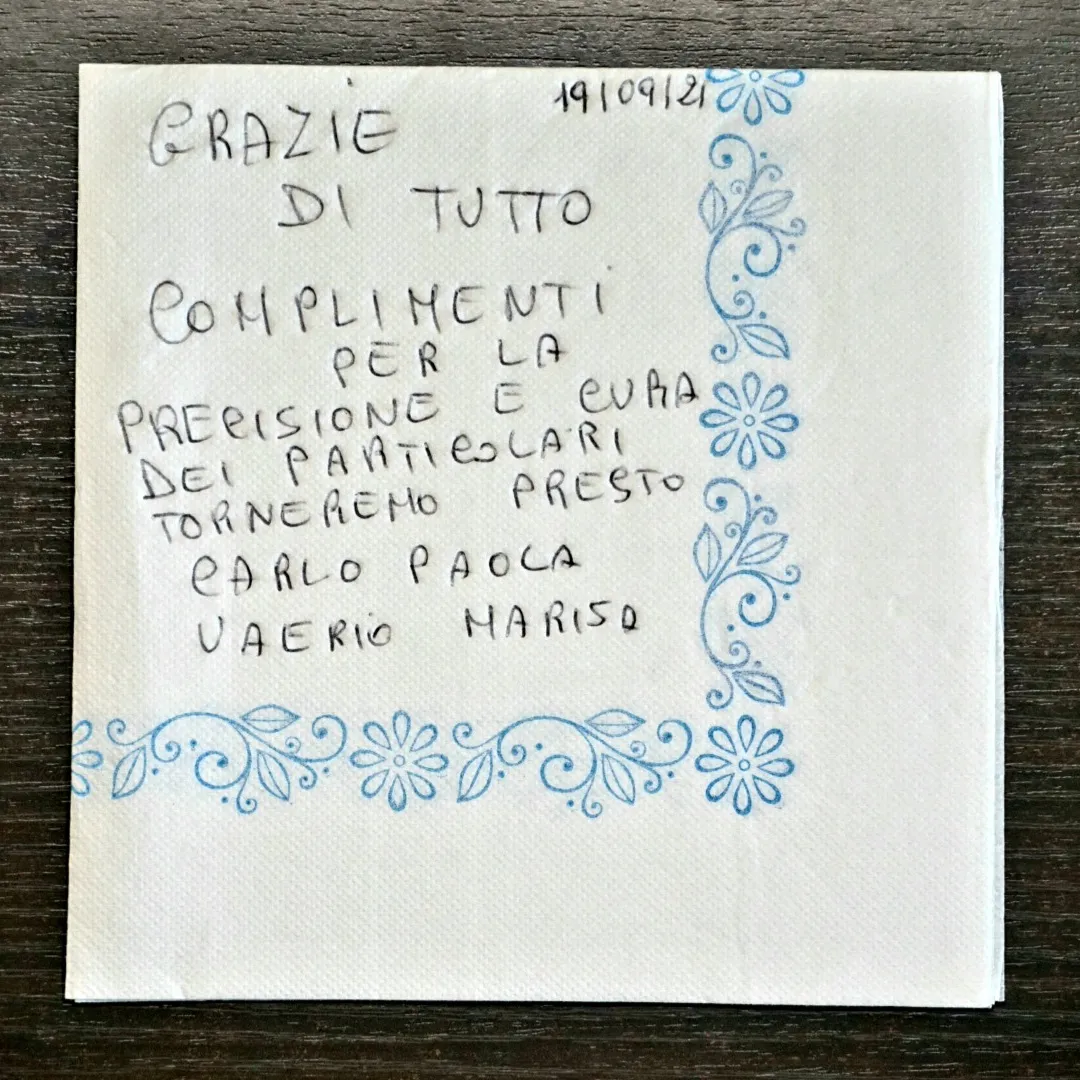 19/09/21
GRAZIE
DI TUTTO
COMPLIMENTI
PER LA
PRECISIONE E CURA
DEI PARTICOLARI
TORNEREMO PRESTO
CARLO PAOLA
VAERIO MARISA